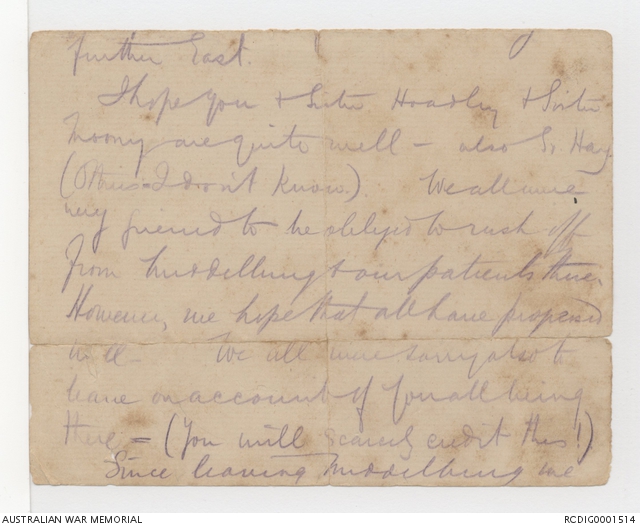 further East.
I hope you & Sister Hoadley & Sister
are quite well - also Sr. Hay
(Others - I don't know.). We all were
very grieved to be obliged to rush off
from Middelburg & our patients there.
However, we hope that all have progressed
well - We all were sorry also to
leave on account of you all being
there - (You will scarcely credit this!)
Since leaving Middelburg we
AUSTRALIAN WAR MEMORIAL
RCDIG0001514